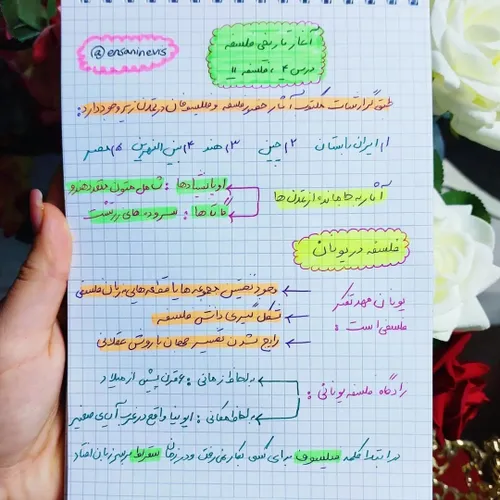 @ensaninevis
آغاز تاریخی فلسفه
درس ۴، فلسفه ۱۱
طبق گزارشات مکتوب آثار حضور فلسفه و فیلسوفان در تمدن زیر وجود دارد:
۱) ایران باستان ۲) چین ۳) هند ۴) بین النهرین ۵) مصر
آثار به جا مانده از تمدن ها
اوپانیشادها: شامل متون مقدس هندو
گاتا ها: سروده های زرتشت
فلسفه در یونان
یونان مهد تفکر فلسفی است:
وجود نخستین مجموعه ها یا قطعه هایی به زبان فلسفی
شکل گیری دانش فلسفه
رایج شدن تفسیر جهان با روش عقلانی
زادگاه فلسفه یونانی:
به لحاظ زمانی: ۶ قرن پیش از میلاد
به لحاظ مکانی: ایونیا واقع در غرب آسیای صغیر
در ابتدا کلمه فیلسوف برای کسی بکار نمی رفت و در زمان سقراط بر سر زبان افتاد